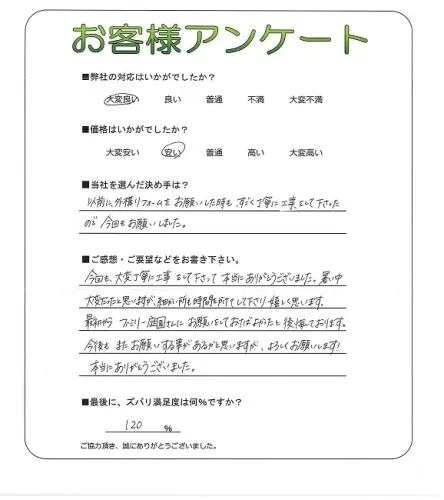 お客様アンケート
■弊社の対応はいかがでしたか？
大変良い 良い 普通 不満 大変不満
■価格はいかがでしたか？
大変安い 安い 普通 高い 大変高い
■当社を選んだ決め手は？
以前に外構リフォームをお願いした時も すごく丁寧に工事をして下さった
ので 今回もお願いしました。
■ご感想・ご要望などをお書き下さい。
今回も、大変丁寧に工事をして下さって 本当にありがとうございました。暑い中
大変だったと思いますが、細かい所も時間をかけてして下さり嬉しく思います。
最初から ファミリー庭園さんに お願いをしておけばよかったと後悔しております。
今後も またお願いする事があるかと思いますが、よろしくお願いします!
本当にありがとうございました。
■最後に、ズバリ満足度は何%ですか？
120 %
ご協力頂き、誠にありがとうございました。